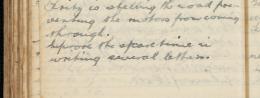 co shelling the road pre-
venting the motors from coming
through.
Improve the spare time in
writing several letters.